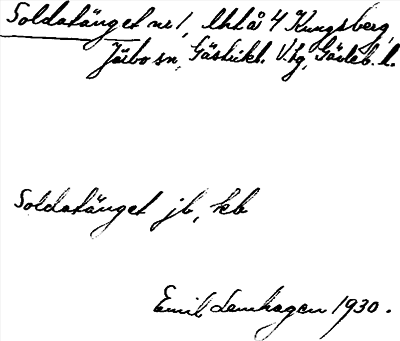 Soldatänget nr 1, lhlå 4 Kungsberg,
Järbo sn, Gästrikl. V. tg, Gävleb. l.
Soldatänget jb, kb
Emil Lemhagen 1930.